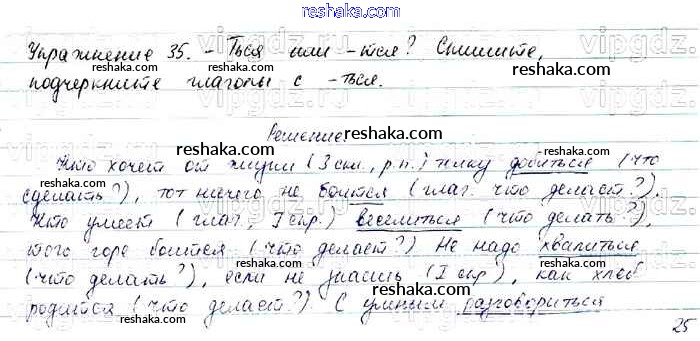 reshaka.com
Упражнение 35. -Ться или -тся? Спишите,
reshaka.com
подчеркните глаголы с -ться.
Решение:
reshaka.com
Кто хочет от жизни (3 скл., р.п.) толку добиться (что
reshaka.com
сделать?), тот ничего не боится (глаг. что делает?).
reshaka.com
Кто умеет (глаг., I спр.) веселиться (что делать?),
того горе боится (что делает?) Не надо хвалиться
reshaka.com
(что делать?), если не знаешь (I спр), как хлеб
reshaka.com
родится (что делает?). С умным разговориться
25
vipgdz.ru